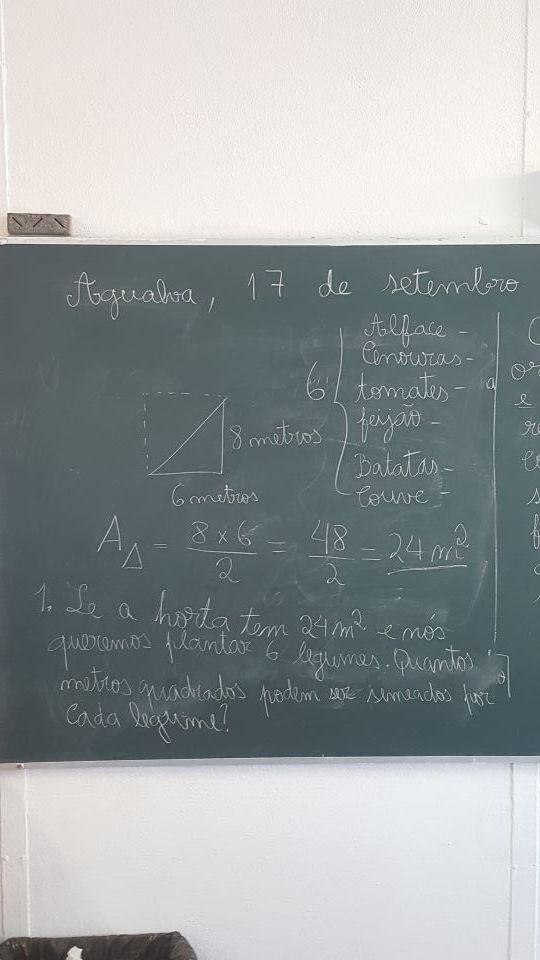 Agualva, 17 de setembro
6
Alface -
Cenouras -
tomates -
feijão -
Batatas -
Couve -
8 metros
6 metros
A△ = 8 x 6 / 2 = 48 / 2 = 24 m²
1. Se a horta tem 24 m² e nós
queremos plantar 6 legumes. Quantos
metros quadrados podem ser semeados por
Cada legume?